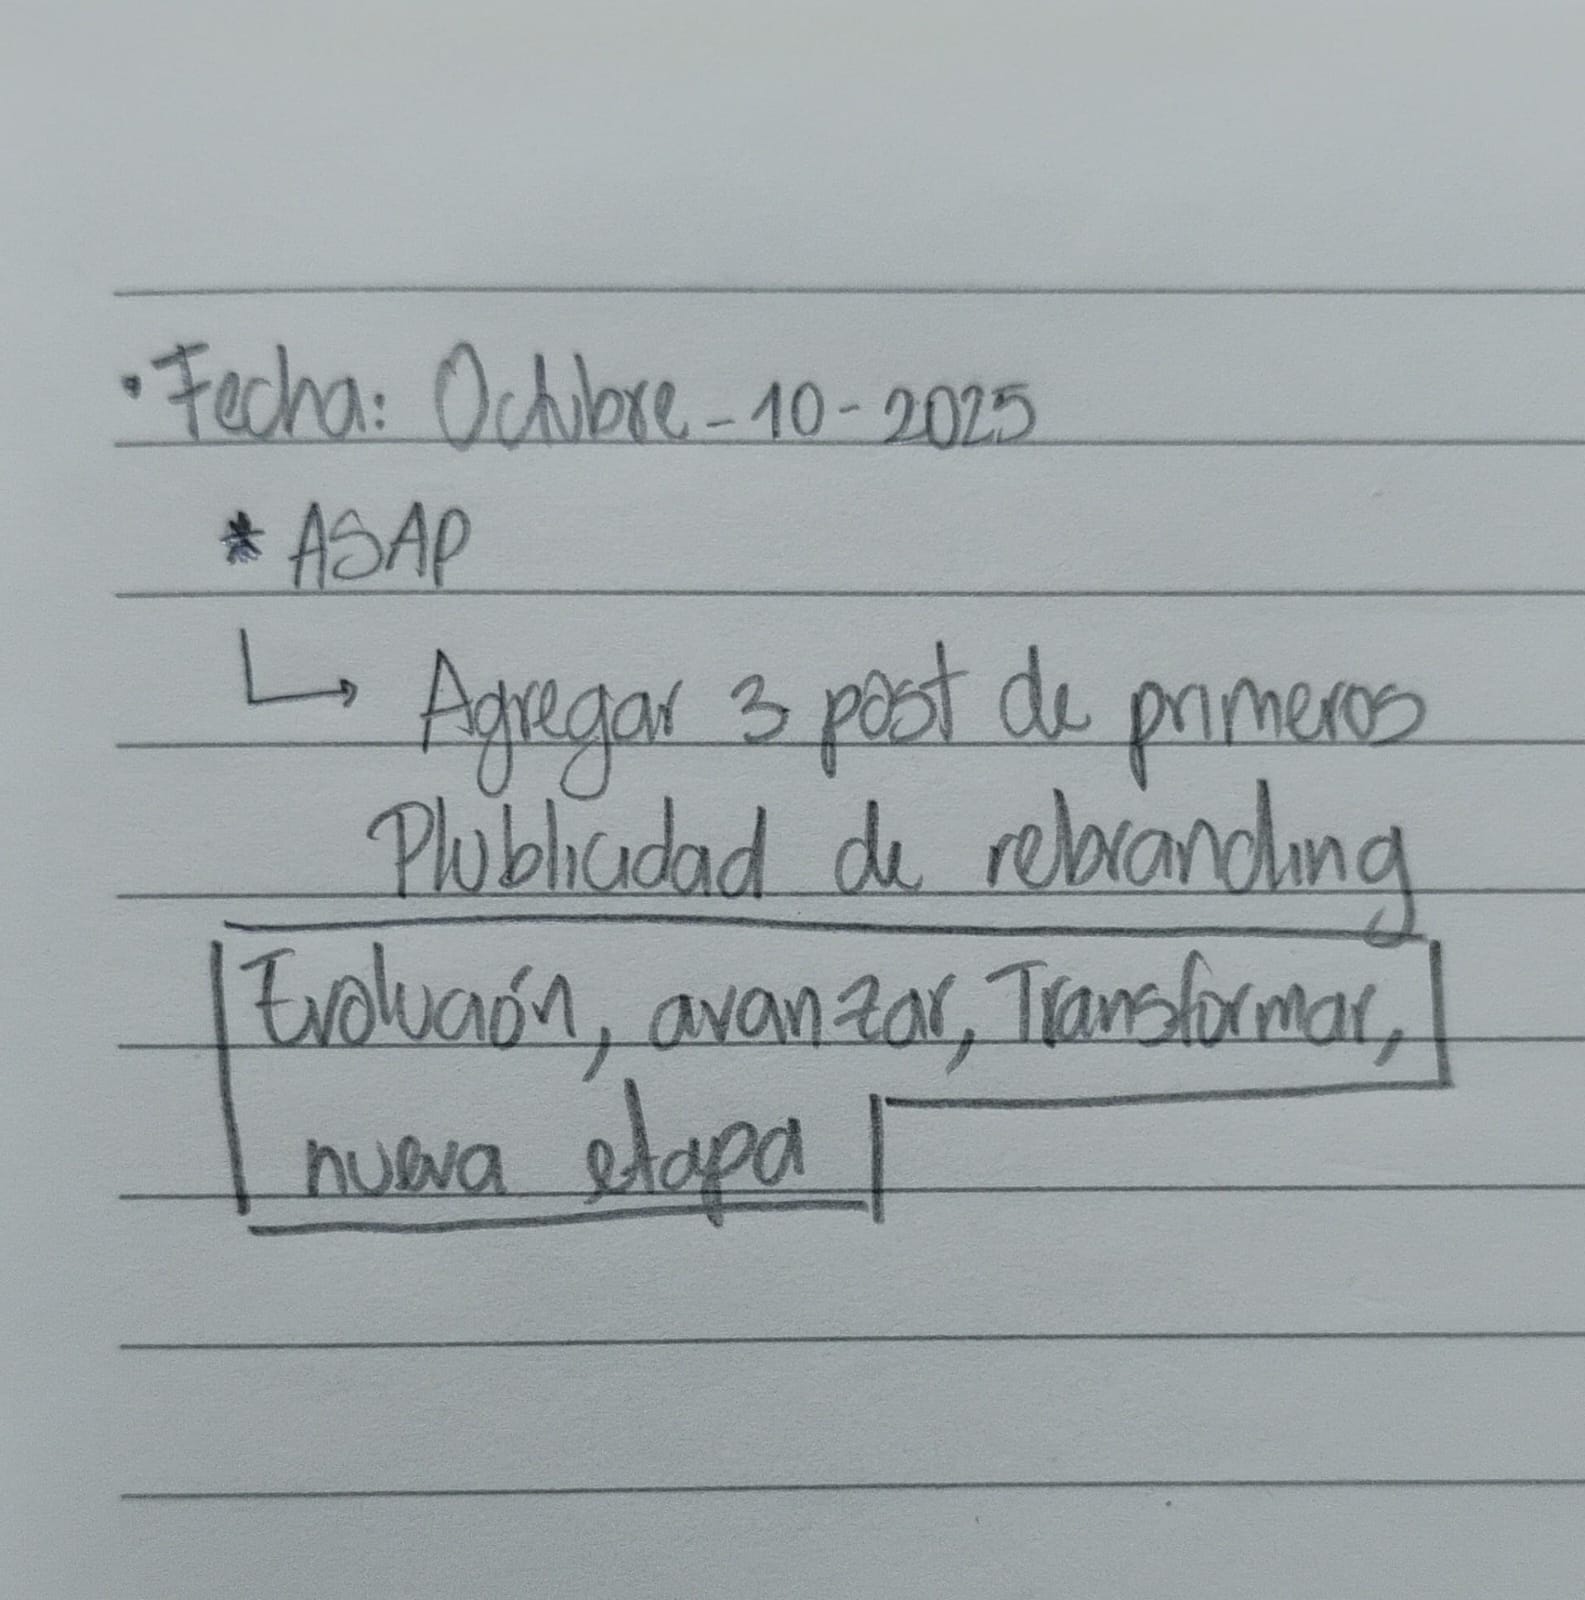 • Fecha: Octubre - 10 - 2025
* ASAP
↳ Agregar 3 post de primeros
Plublicidad de rebranding
Evolución, avanzar, Transformar,
nueva etapa